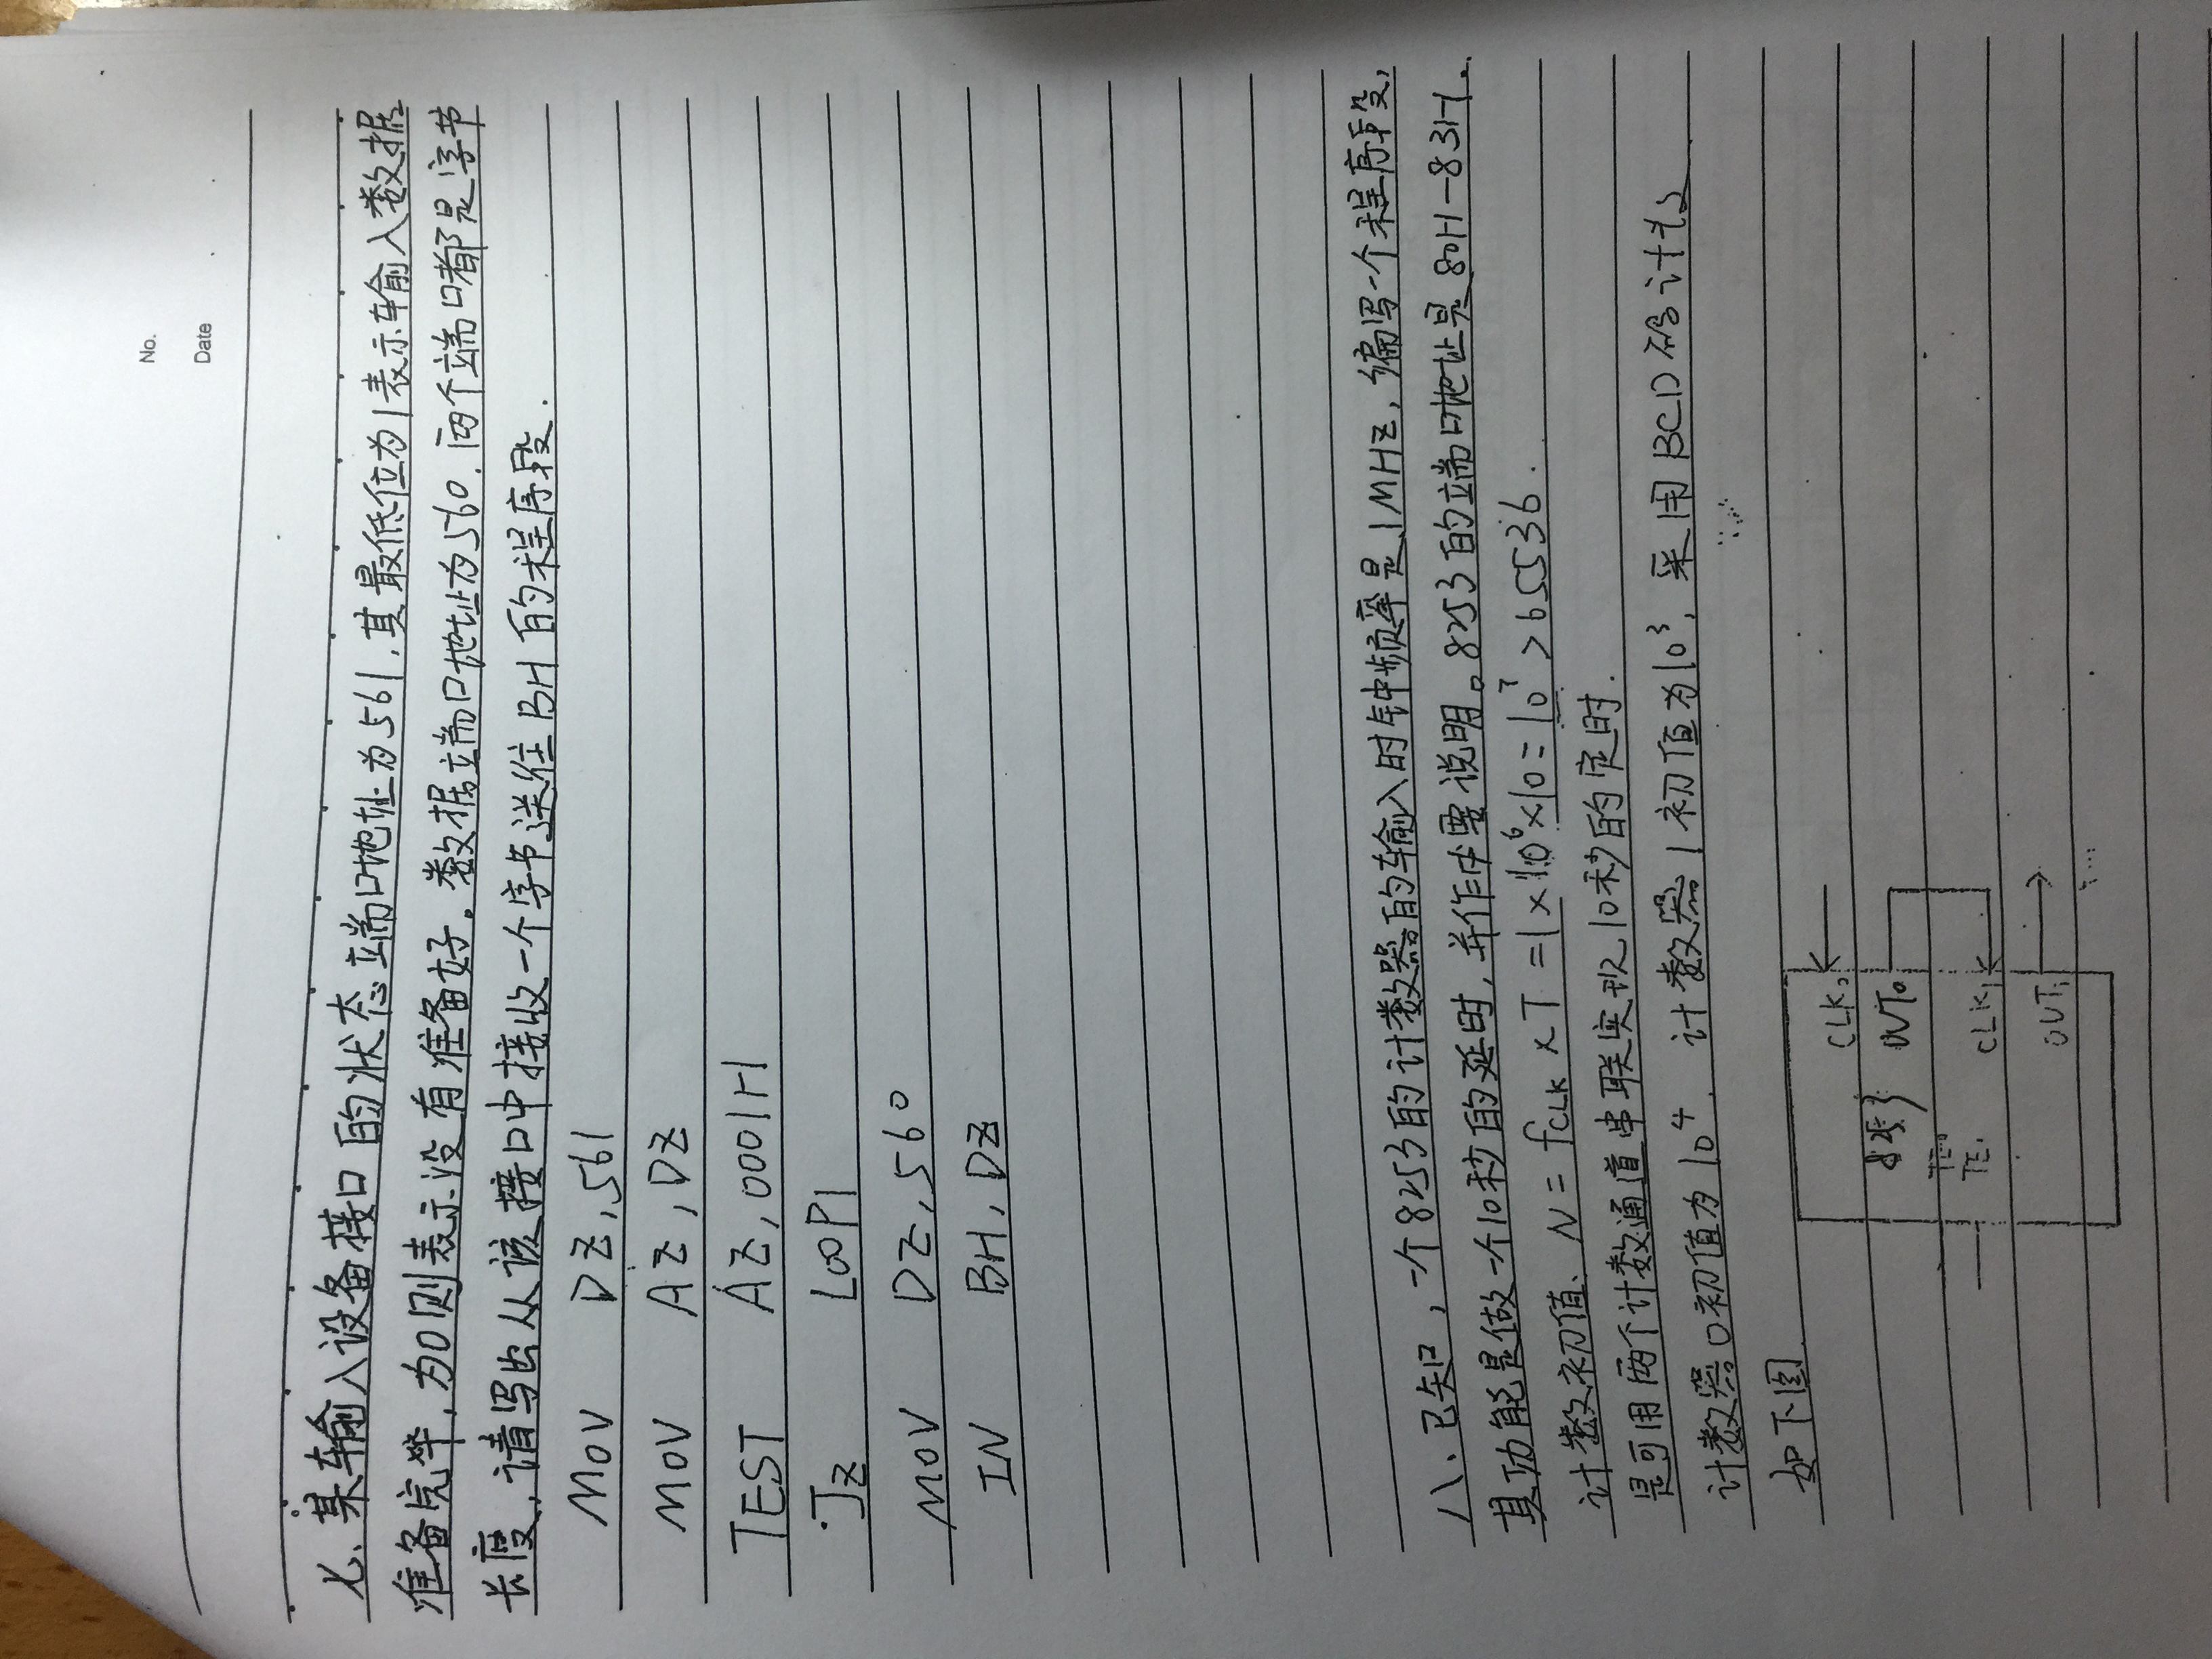 No.
Date
七、某输入设备接口的状态端口地址为561,其最低位为1表示输入数据
准备完毕,为0则表示没有准备好。数据端口地址为560.两个端口都是字节
长度,请写出从该接口中接收一个字节送往BH的程序段.
MOV DZ,561
MOV AZ,DZ
TEST AZ,0001H
JZ LOOP1
MOV DZ,560
IN BH,DZ
八、已知,一个8253的计数器的输入时钟频率是1MHZ,编写一个程序段,
其功能是做一个10秒的延时,并作必要说明。8253的端口地址是80H-83H。
计数初值、N=fCLK×T=1×10⁶×10=10⁷>65536.
是可用两个计数通道串联实现10秒的定时.
计数器0初值为10⁴.计数器1初值为10³,采用BCD码计数
如下图
CLK₀
8253 OUT₀
TE₀
TE₁ CLK₁
OUT₁